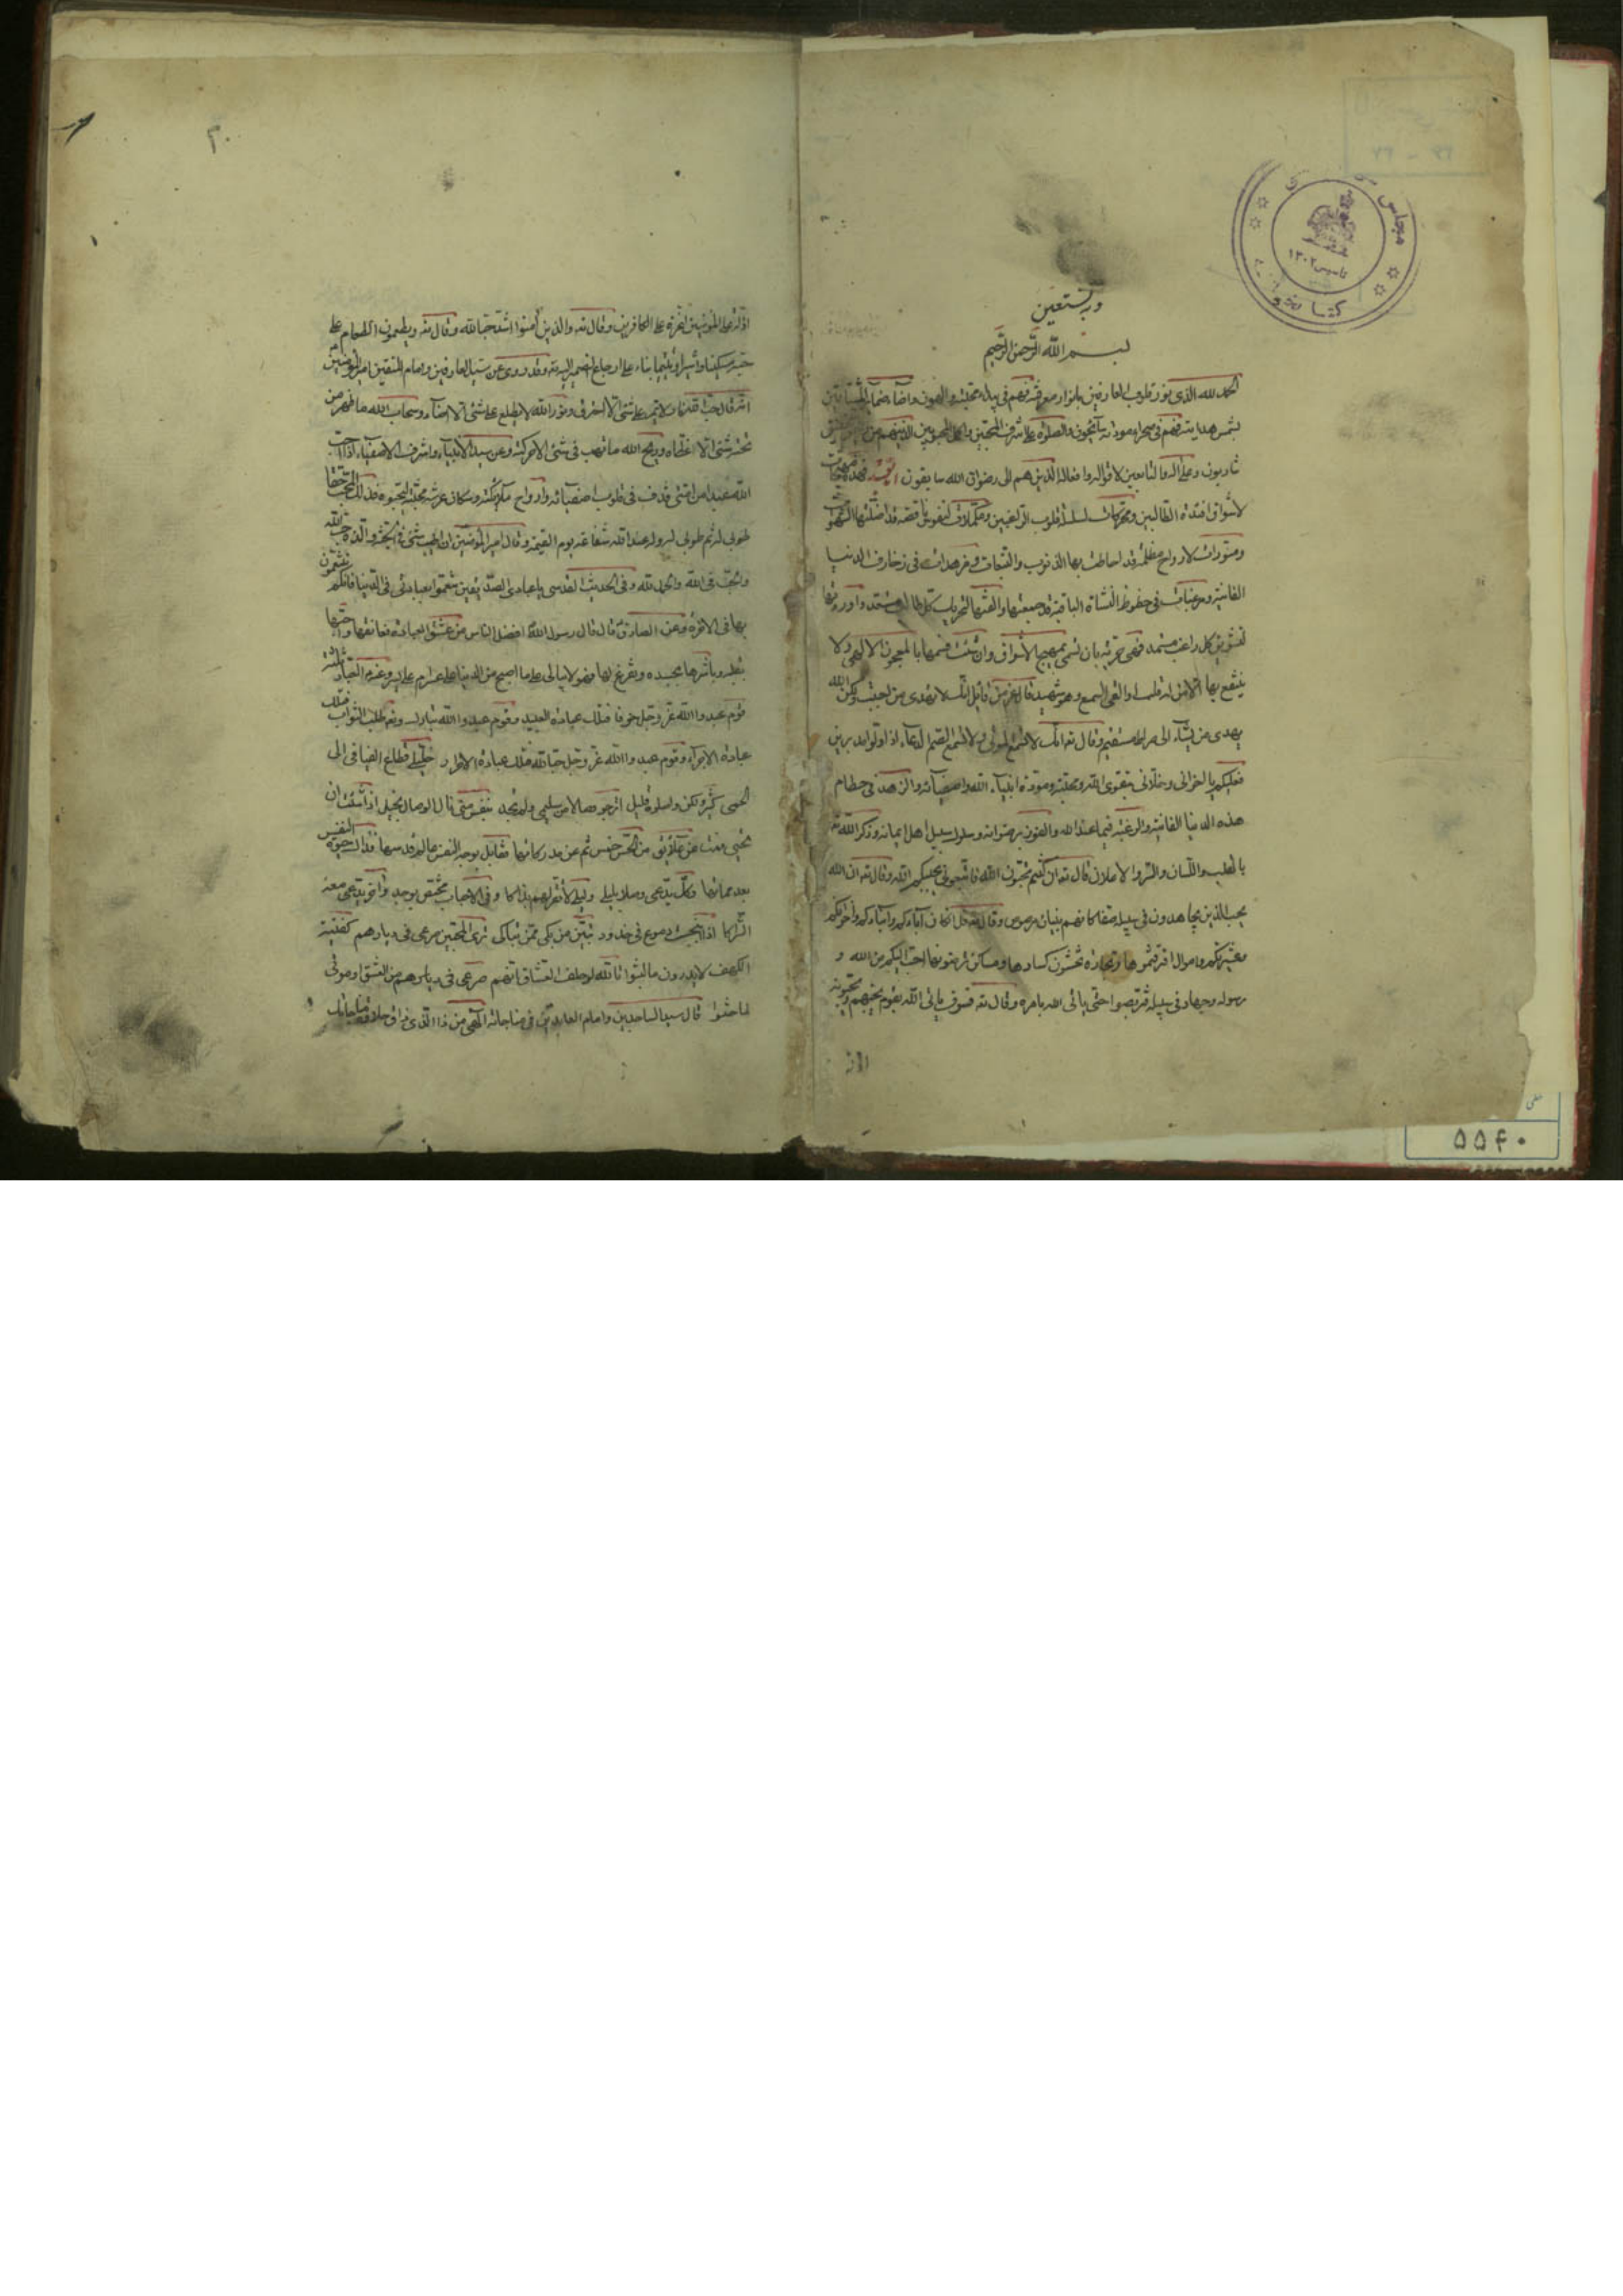 وبه نستعين
بسم الله الرحمن الرحيم
الحمد لله الذي نور قلوب العارفين بانوار معرفته فهم في بيداء محبته والهون واضاء ضمائر المشتاقين
بشمس هدايته فهم في صحراء مودته سايحون والصلوة على اشرف المحبين واكمل المحبوبين الذينهم من
شاربون وعلى اله والتابعين لاقواله وافعاله الذين هم الى رضوان الله سابقون فهذه مهيجات
لاشواق افئدة الطالبين ومحركات لسلسلة قلوب الراغبين ومكملات لنفوس ناقصة قد اضلتها الشهوات
ومنورات لارواح مظلمة قد احاطت بها الذنوب والتبعات ومزهدات في زخارف الدنيا
الفانية ومرغبات في حظوظ النشاة الباقية قد جمعتها والفتها لتحريك كل طالب مستعد واوردتها
لتشويق كل راغب مستمد فهي حرية بان تسمى بمهيج الاشواق وان شئت فسمها بالمعجون الالهي ولا
ينتفع بها الا من له قلب او القى السمع وهو شهيد قال عز من قائل انك لا تهدي من احببت ولكن الله
يهدي من يشاء الى صراط مستقيم وقال تع انك لا تسمع الموتى ولا تسمع الصم الدعاء اذا ولوا مدبرين
فعليكم يا اخواني وخلاني بتقوى الله ومحبته ومودة انبياء الله واصفيائه والزهد في حطام
هذه الدنيا الفانية والرغبة فيما عند الله والفوز برضوانه وسلوك سبيل اهل ايمانه وذكر الله تع
بالقلب واللسان والسر والاعلان قال تع ان كنتم تحبون الله فاتبعوني يحببكم الله وقال تع ان الله
يحب الذين يجاهدون في سبيله صفا كانهم بنيان مرصوص وقال تع قل ان كان آباءكم وابناءكم واخوانكم
وعشيرتكم واموال اقترفتموها وتجارة تخشون كسادها ومساكن ترضونها احب اليكم من الله و
رسوله وجهاد في سبيله فتربصوا حتى ياتي الله بامره وقال تع فسوف ياتي الله بقوم يحبهم ويحبونه
اذلة
مجلس
تاسيس ١٣٠٢
٥٥٤٠
٢٠
اذلة على المؤمنين اعزة على الكافرين وقال تع والذين آمنوا اشد حبا لله وقال تع ويطعمون الطعام على
حبه مسكينا واسيرا ويتيما بناء على ارجاع الضمير اليه تع وقد روى عن سيد العارفين وامام المتقين امير المؤمنين
انه قال حب الله نار لا يمر على شئ الا احترق ونور الله لا يطلع على شئ الا اضاء وسحاب الله ما ظهر من
تحته شئ الا غطاه وريح الله ما تهب في شئ الا حركته وعن سيد الانبياء واشرف الاصفياء اذا احب
الله عبدا من امتي قذف في قلوب اصفيائه وارواح ملائكته وسكان عرشه محبته ليحبوه فذلك المحب حقا
طوبى له ثم طوبى له وله عند الله شفاعة يوم القيمة وقال امير المؤمنين ان اطيب شئ في الجنة والذه حب الله
والحب في الله والحمد لله وفي الحديث القدسي يا عبادي الصديقين تنعموا بعبادتي في الدنيا فانكم تتنعمون
بها في الاخرة وعن الصادق قال قال رسول الله افضل الناس من عشق العبادة فعانقها واحبها
بقلبه وباشرها بجسده وتفرغ لها فهو لا يبالي على ما اصبح من الدنيا على عسر ام على يسر وعنه العبادة ثلثة
قوم عبدوا الله عز وجل خوفا فتلك عبادة العبيد وقوم عبدوا الله تبارك وتع طلب الثواب فتلك
عبادة الاجراء وقوم عبدوا الله عز وجل حبا لله فتلك عبادة الاحرار خليلي قطاع الفيافي الى
الحمى كثير ولكن واصلوه قليل
بعد مماتها وكل يدعى وصلا بليلى وليلى لا تقر لهم بذاكا
اذا انبجست دموع في خدود تبين من بكى ممن تباكى ترى المحبين صرعى في ديارهم كفتية
الكهف لا يدرون ما لبثوا تالله لو حلف العشاق انهم صرعى من العشق او موتى
لما حنثوا قال سيد الساجدين وامام العابدين في مناجاته الهي من ذا الذي ذاق حلاوة